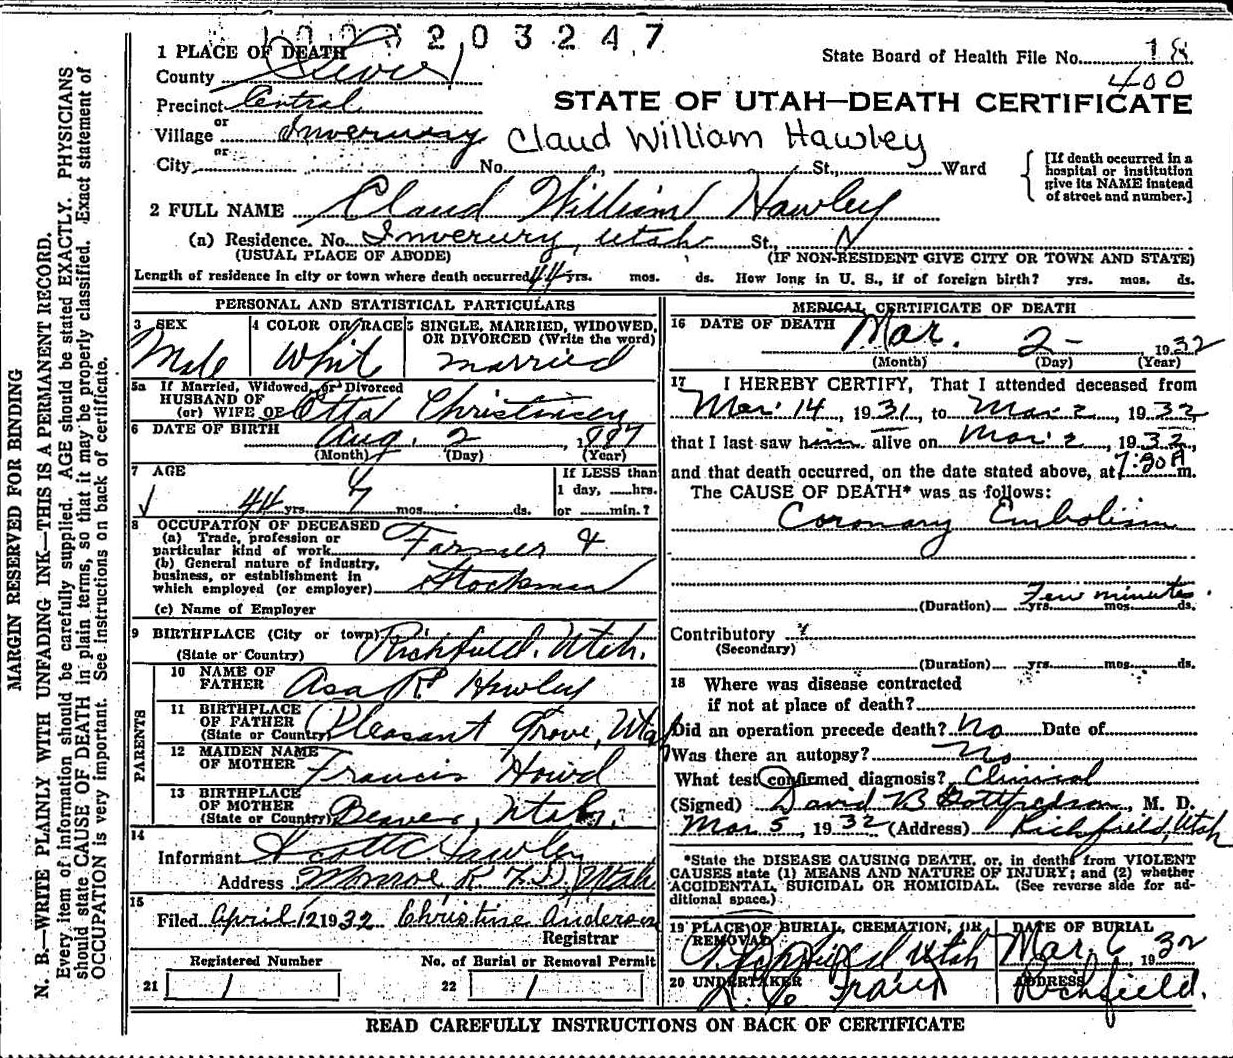 203247
1 PLACE OF DEATH
State Board of Health File No. 18
County Sevier
400
Precinct Central
STATE OF UTAH—DEATH CERTIFICATE
or
Village Inverury
Claud William Hawley
or
City No. St., Ward
[If death occurred in a
hospital or institution
give its NAME instead
of street and number.]
2 FULL NAME Claud William Hawley
(a) Residence. No. Inverury, Utah St.,
(USUAL PLACE OF ABODE) (IF NON-RESIDENT GIVE CITY OR TOWN AND STATE)
Length of residence in city or town where death occurred 44 yrs. mos. ds. How long in U. S., if of foreign birth? yrs. mos. ds.
PERSONAL AND STATISTICAL PARTICULARS
3 SEX
Male
4 COLOR OR RACE
White
5 SINGLE, MARRIED, WIDOWED,
OR DIVORCED (Write the word)
married
5a If Married, Widowed, or Divorced
HUSBAND OF
(or) WIFE OF Etta Christinsen
6 DATE OF BIRTH Aug. 2, 1887
(Month) (Day) (Year)
7 AGE
44 yrs. 7 mos. ds.
If LESS than
1 day, hrs.
or min.?
8 OCCUPATION OF DECEASED
(a) Trade, profession or
particular kind of work Farmer &
(b) General nature of industry,
business, or establishment in
which employed (or employer) Stockman
(c) Name of Employer
9 BIRTHPLACE (City or town) Richfield, Utah.
(State or Country)
PARENTS
10 NAME OF
FATHER Asa R Hawley
11 BIRTHPLACE
OF FATHER
(State or Country) Pleasant Grove, Utah
12 MAIDEN NAME
OF MOTHER Francis Howd
13 BIRTHPLACE
OF MOTHER
(State or Country) Beaver, Utah.
14
Informant Scott Hawley
Address Monroe R.F.D. Utah
15
Filed April 12 1932 Christine Anderson
Registrar
Registered Number
21 1
No. of Burial or Removal Permit
22 1
MEDICAL CERTIFICATE OF DEATH
16 DATE OF DEATH Mar. 2- 1932
(Month) (Day) (Year)
17 I HEREBY CERTIFY, That I attended deceased from
Mar. 14, 1931, to Mar 2, 1932,
that I last saw him alive on Mar. 2, 1932,
and that death occurred, on the date stated above, at 7:30 A m.
The CAUSE OF DEATH* was as follows:
Coronary Embolism
Few minutes.
(Duration) yrs. mos. ds.
Contributory
(Secondary)
(Duration) yrs. mos. ds.
18 Where was disease contracted
if not at place of death?
Did an operation precede death? No Date of
Was there an autopsy? No
What test confirmed diagnosis? Clinical
(Signed) David B Gottfredson, M. D.
Mar 5, 1932 (Address) Richfield, Utah
*State the DISEASE CAUSING DEATH, or, in deaths from VIOLENT
CAUSES state (1) MEANS AND NATURE OF INJURY; and (2) whether
ACCIDENTAL, SUICIDAL OR HOMICIDAL. (See reverse side for ad-
ditional space.)
19 PLACE OF BURIAL, CREMATION, OR
REMOVAL
Richfield Utah
DATE OF BURIAL
Mar. 6 1932
20 UNDERTAKER
ADDRESS
Richfield.
READ CAREFULLY INSTRUCTIONS ON BACK OF CERTIFICATE
MARGIN RESERVED FOR BINDING
N. B.—WRITE PLAINLY WITH UNFADING INK—THIS IS A PERMANENT RECORD.
Every item of information should be carefully supplied. AGE should be stated EXACTLY. PHYSICIANS
should state CAUSE OF DEATH in plain terms, so that it may be properly classified. Exact statement of
OCCUPATION is very important. See instructions on back of certificate.